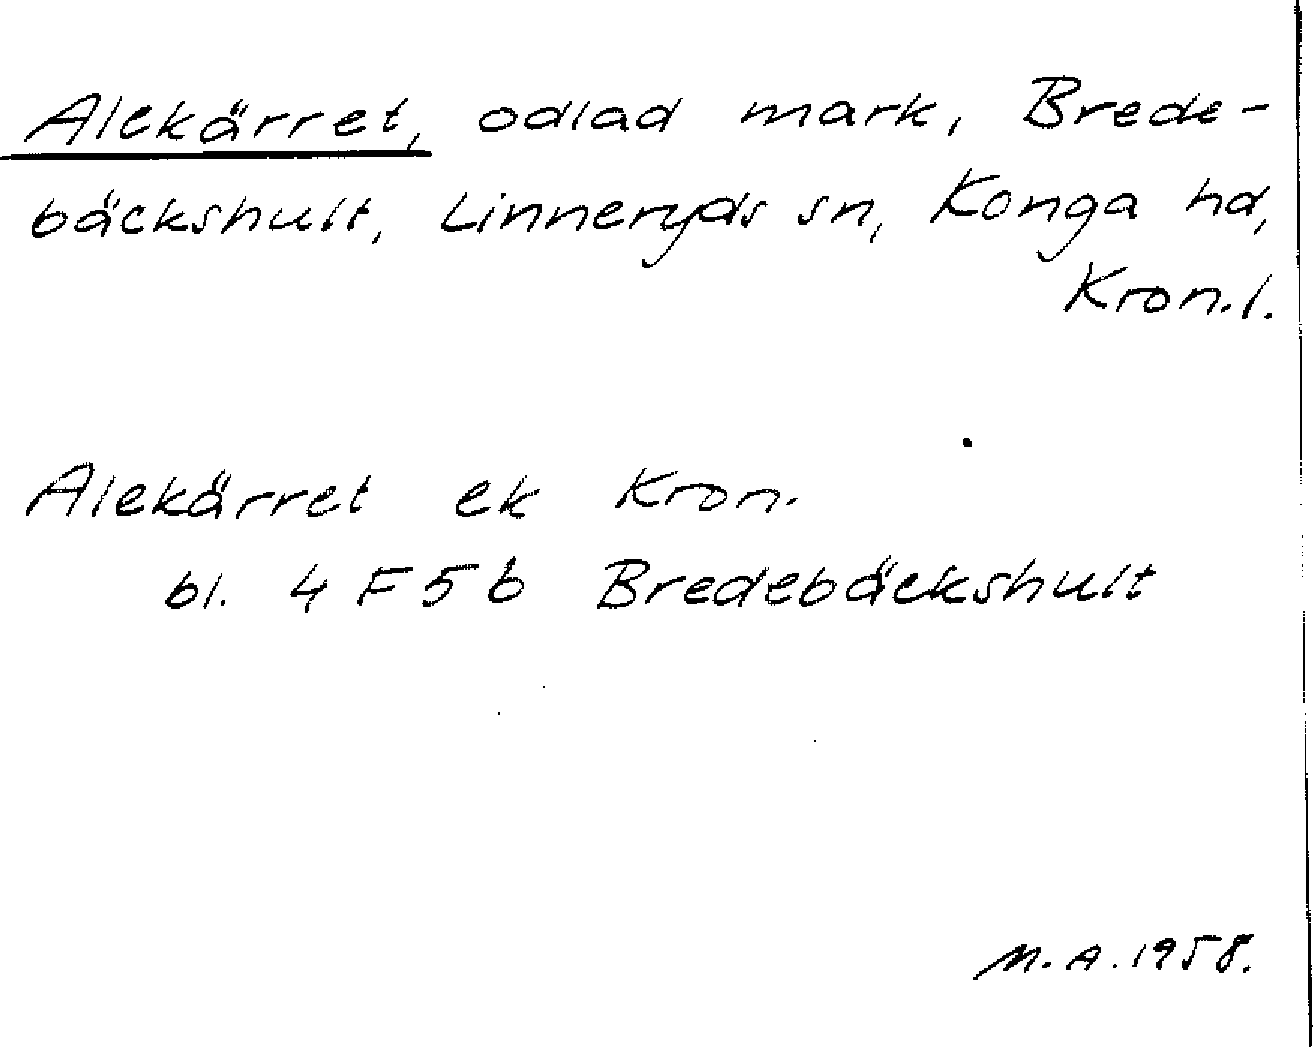 Alekärret, odlad mark, Brede-
bäckshult, Linneryds sn, Konga hd,
Kron.l.
Alekärret ek Kron.
bl. 4 F 5 b Bredebäckshult
M.A. 1958.